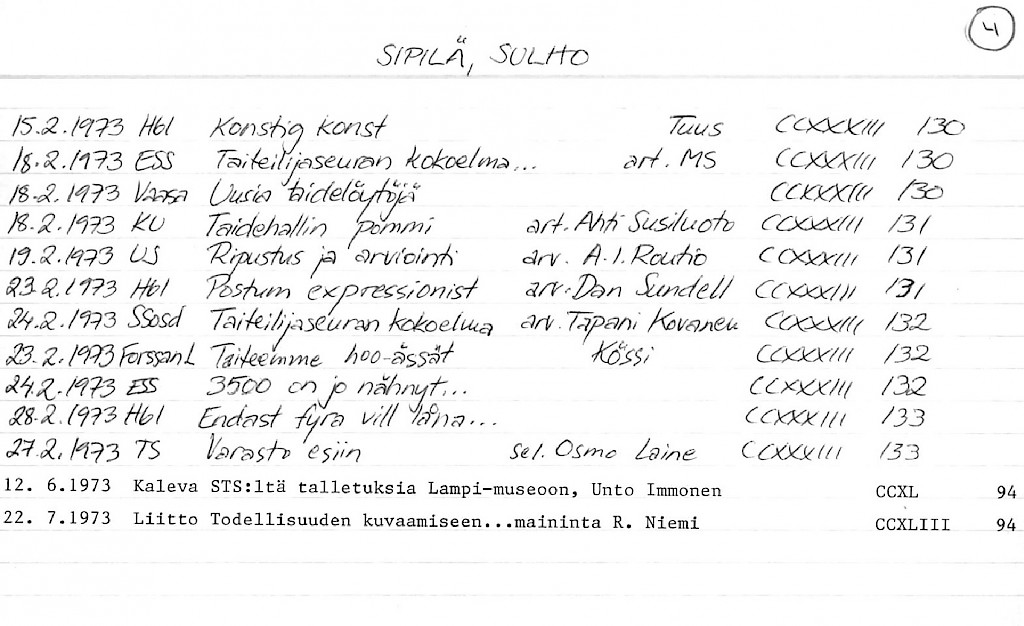 4
SIPILÄ, SULHO
15.2.1973 Hbl Konstig konst Tuus CCXXXIII 130
18.2.1973 ESS Taiteilijaseuran kokoelma... art. MS CCXXXIII 130
18.2.1973 Vaasa Uusia taidelöytöjä CCXXXIII 130
18.2.1973 KU Taidehallin pommi art. Ahti Susiluoto CCXXXIII 131
19.2.1973 US Ripustus ja arviointi arv. A.I. Routio CCXXXIII 131
23.2.1973 Hbl Postum expressionist arv. Dan Sundell CCXXXIII 131
24.2.1973 SSosd Taiteilijaseuran kokoelma arv. Tapani Kovanen CCXXXIII 132
23.2.1973 Forssan L Taiteemme hoo-ässät Kössi CCXXXIII 132
24.2.1973 ESS 3500 on jo nähnyt... CCXXXIII 132
28.2.1973 Hbl Endast fyra vill låna... CCXXXIII 133
27.2.1973 TS Varasto esiin sel. Osmo Laine CCXXXIII 133
12. 6.1973 Kaleva STS:ltä talletuksia Lampi-museoon, Unto Immonen CCXL 94
22. 7.1973 Liitto Todellisuuden kuvaamiseen...maininta R. Niemi CCXLIII 94